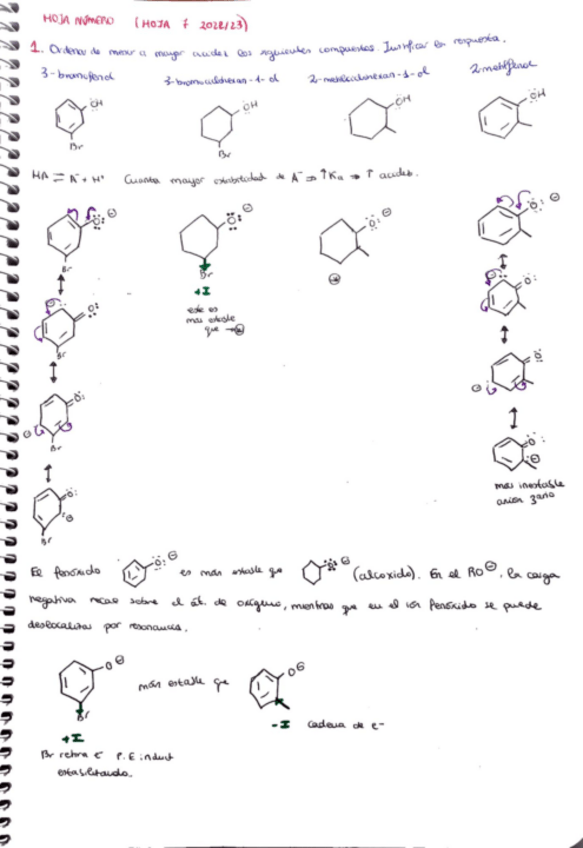 HOJA NÚMERO (HOJA 7 2022/23)
1. Ordenar de menor a mayor acidez los siguientes compuestos. Justificar la respuesta.
3-bromofenol 3-bromociclohexan-1-ol 2-metilciclohexan-1-ol 2-metilfenol
OH OH OH OH
Br Br
HA ⇌ A⁻ + H⁺ Cuanta mayor estabilidad de A⁻ ⇒ ↑Ka ⇒ ↑ acidez.
Br
+I
este es
más estable
que
Br
Br
Br
más inestable
anión 3ario
El fenóxido es más estable que (alcóxido). En el RO⊖, la carga
negativa recae sobre el át. de oxígeno, mientras que en el ion fenóxido se puede
deslocalizar por resonancia.
O⊖ más estable que O⊖
Br
+I -I
Br retira e⁻ P.E induct
estabilizando.